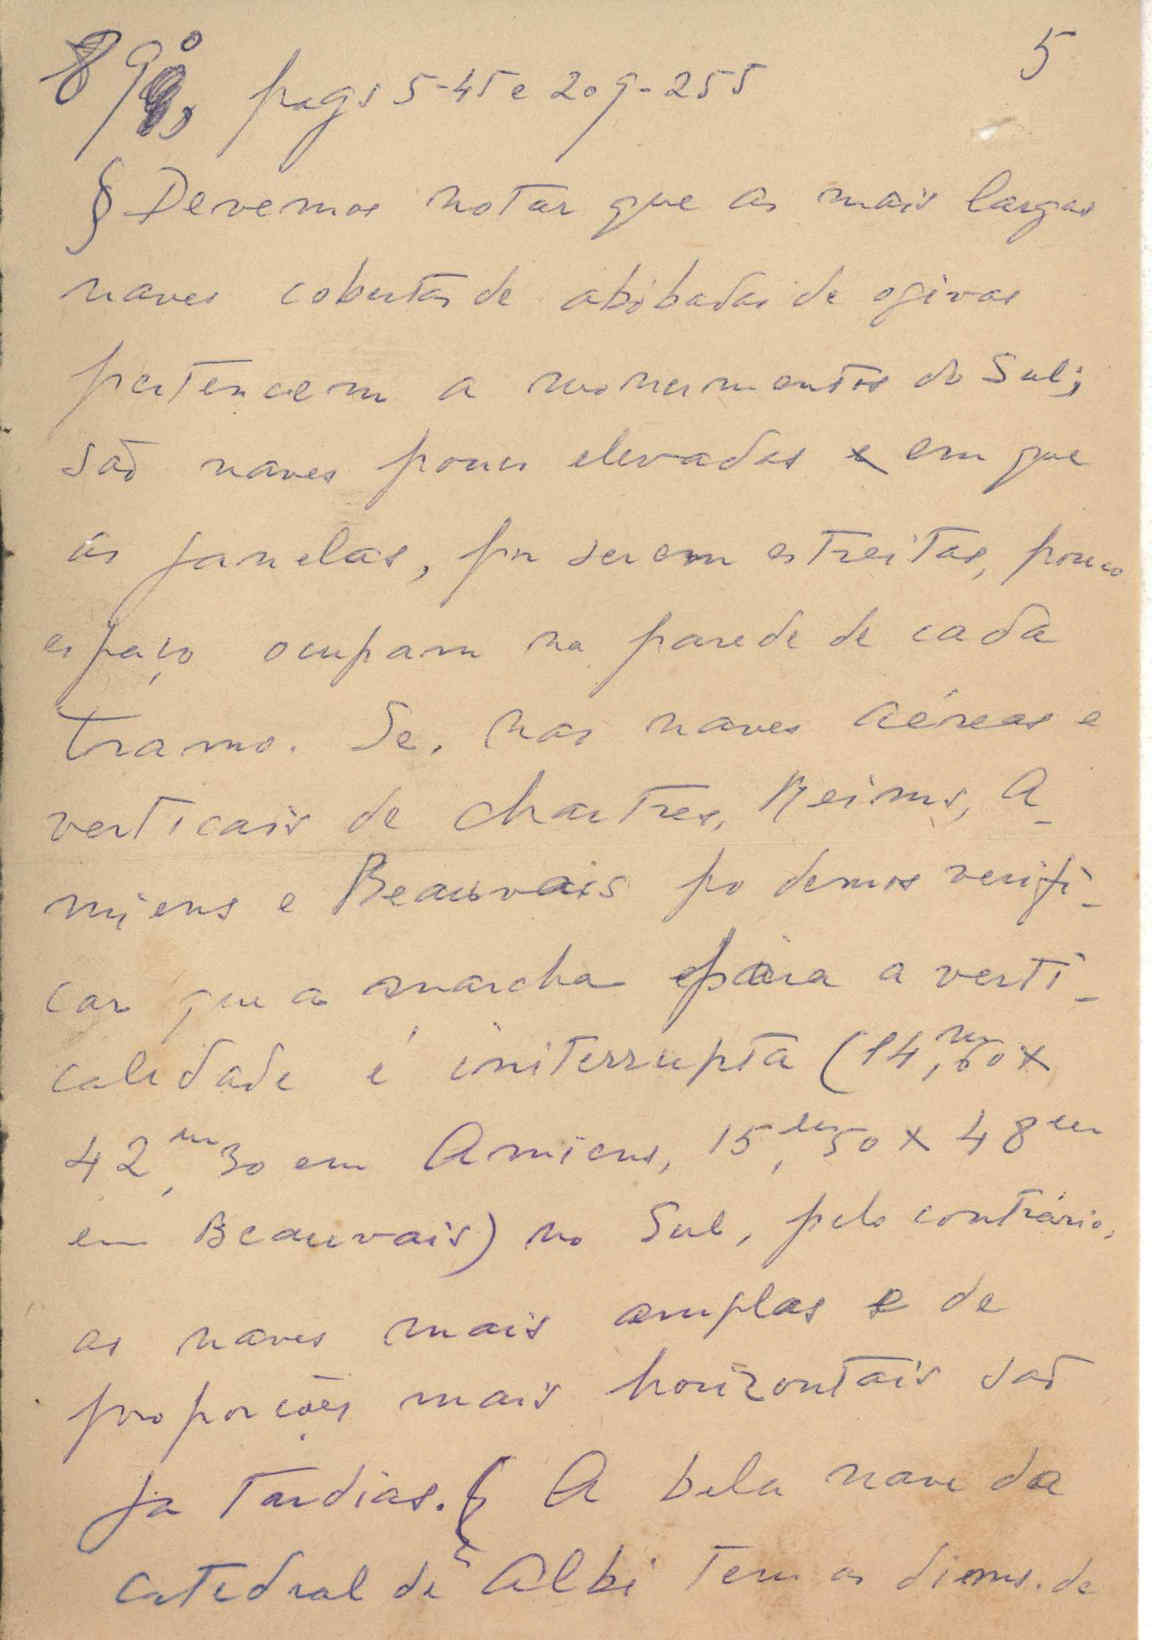 5
pags 5-45 e 209-255
§ Devemos notar que as mais largas
naves cobertas de abóbadas de ogivas
pertencem a monumentos do Sul;
são naves pouco elevadas e em que
as janelas, por serem estreitas, pouco
espaço ocupam na parede de cada
tramo. Se, nas naves aéreas e
verticais de Chartres, Reims, A-
miens e Beauvais podemos verifi-
car que a marcha para a verti-
calidade é initerrupta (14,m60 x
42,m30 em Amiens, 15,m50 x 48m
em Beauvais) no Sul, pelo contrário,
as naves mais amplas e de
proporções mais horizontais são
ja tardias. A bela nave da
catedral de Albi tem as dims. de